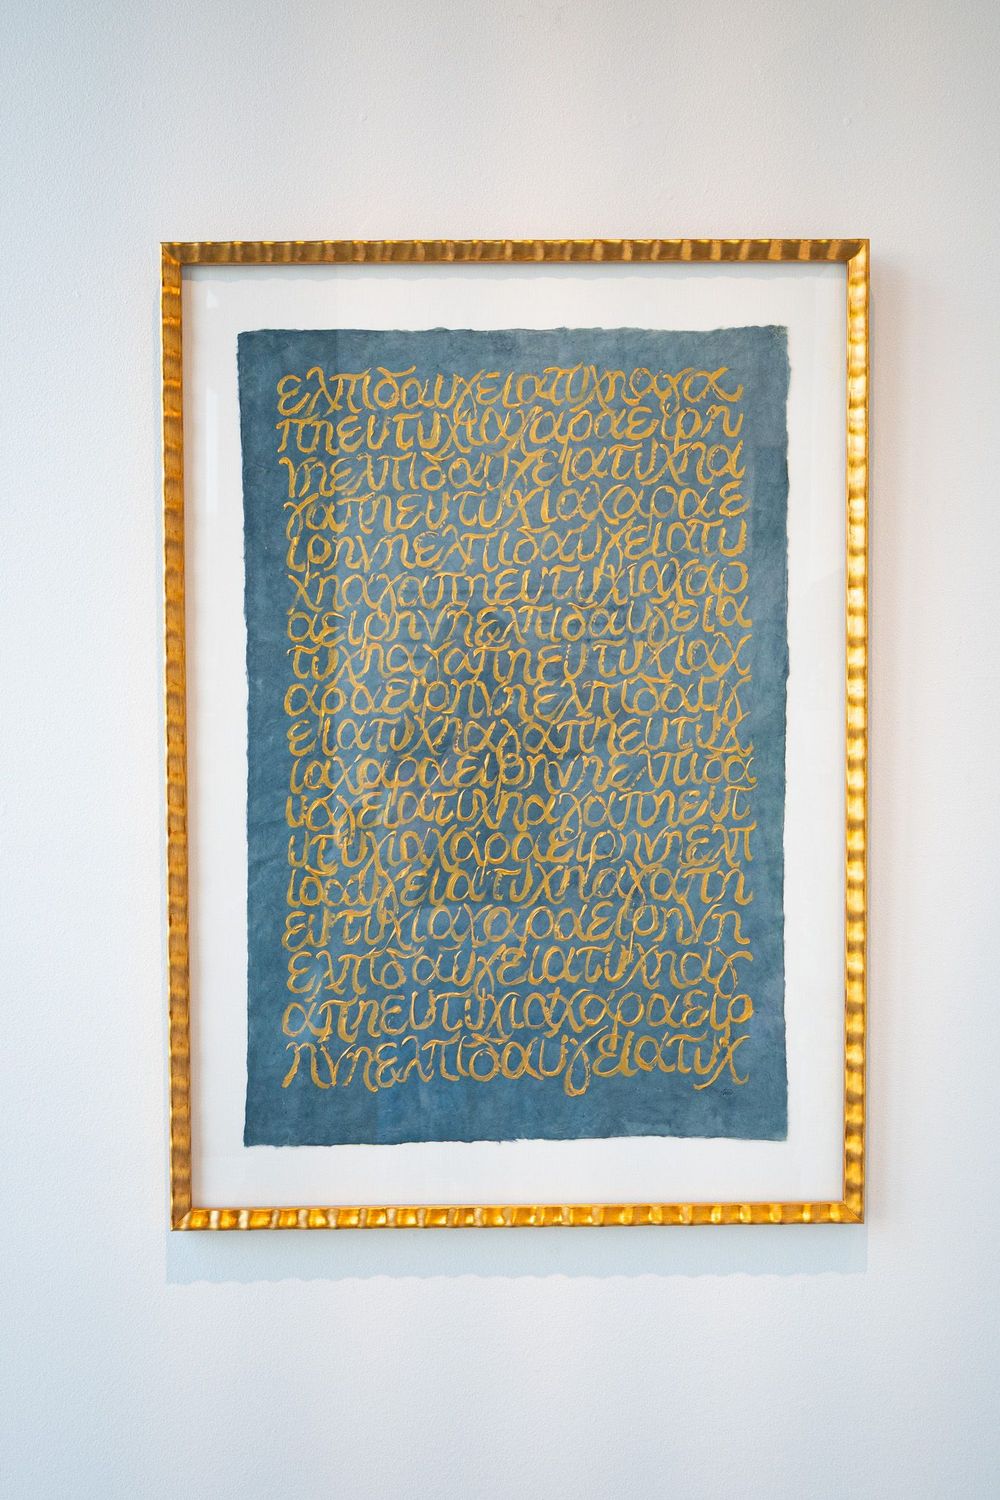 ελπιδαυγειατυχηαγα
πηευτυχιαχαραειρη
νηελπιδαυγειατυχηα
γαπηευτυχιαχαραε
ιρηνηελπιδαυγειατυ
χηαγαπηευτυχιαχαρ
αειρηνηελπιδαυγεια
τυχηαγαπηευτυχιαχ
αραειρηνηελπιδαυγ
ειατυχηαγαπηευτυχ
ιαχαραειρηνηελπιδα
υαγειατυχηαγαπηευτ
υτυχιαχαραειρηνηελπ
ιδαυγειατυχηαγαπη
ευτυχιαχαραειρηνη
ελπιδαυγειατυχηαγ
απηευτυχιαχαραειρ
ηνηελπιδαυγειατυχ